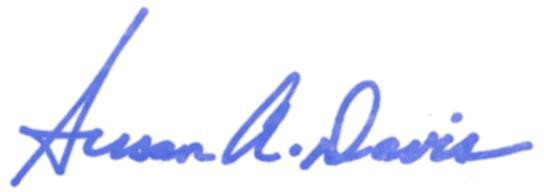 Susan A. Davis